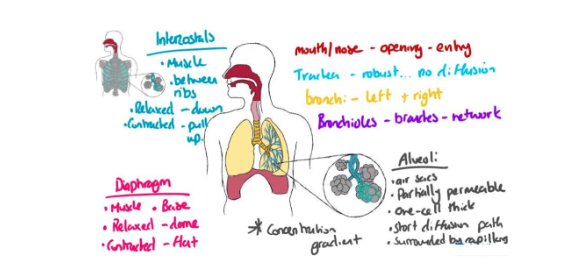 Intercostals
• Muscle
• between
ribs
• Relaxed - down
• Contracted - pull
up.
mouth/nose - opening - entry
Trachea - robust... no diffusion
bronchi - left + right
Bronchioles - branches - network
Alveoli:
• air sacs
• Partially permeable
• One-cell thick
• Short diffusion path
• Surrounded by capillary
Diaphragm
• Muscle • Base
• Relaxed - dome
• Contracted - flat
* Concentration
gradient